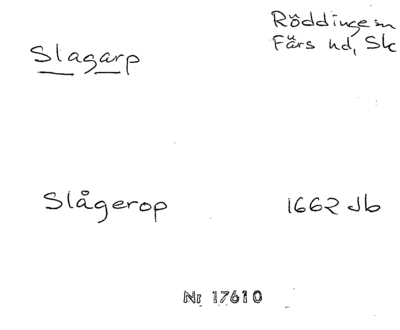 Slagarp
Röddinge sn
Färs hd, Sk
Slågerop
1662 Jb
Nr 17610